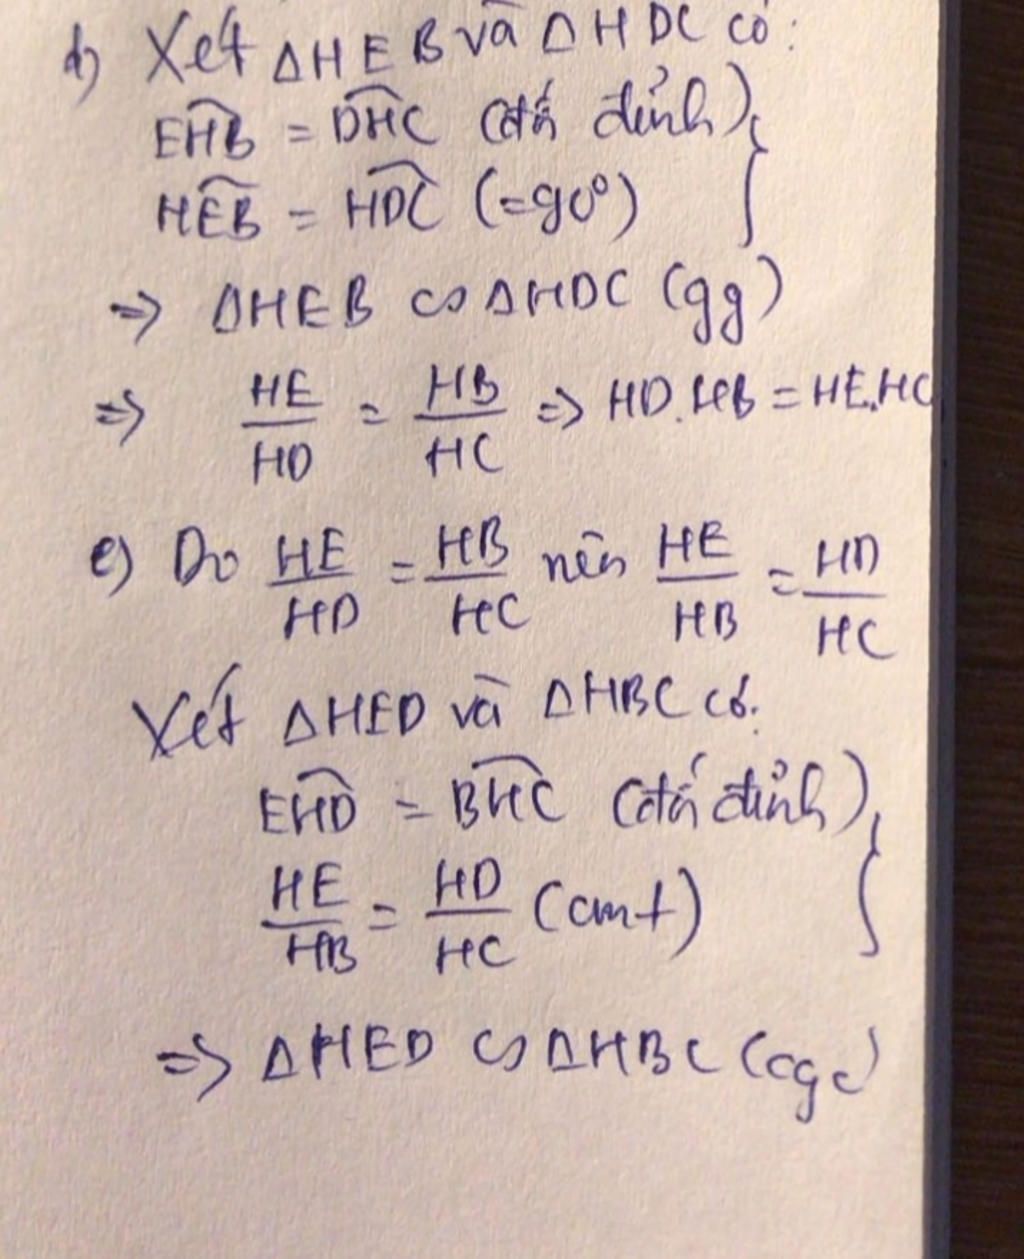 d) Xét ΔHEB và ΔHDC có:
EHB = DHC (đối đỉnh)
HEB = HDC (=90°)
=> ΔHEB ∽ ΔHDC (gg)
=> HE/HD = HB/HC => HD.HB = HE.HC
e) Do HE/HD = HB/HC nên HE/HB = HD/HC
Xét ΔHED và ΔHBC có:
EHD = BHC (đối đỉnh)
HE/HB = HD/HC (cmt)
=> ΔHED ∽ ΔHBC (cgc)